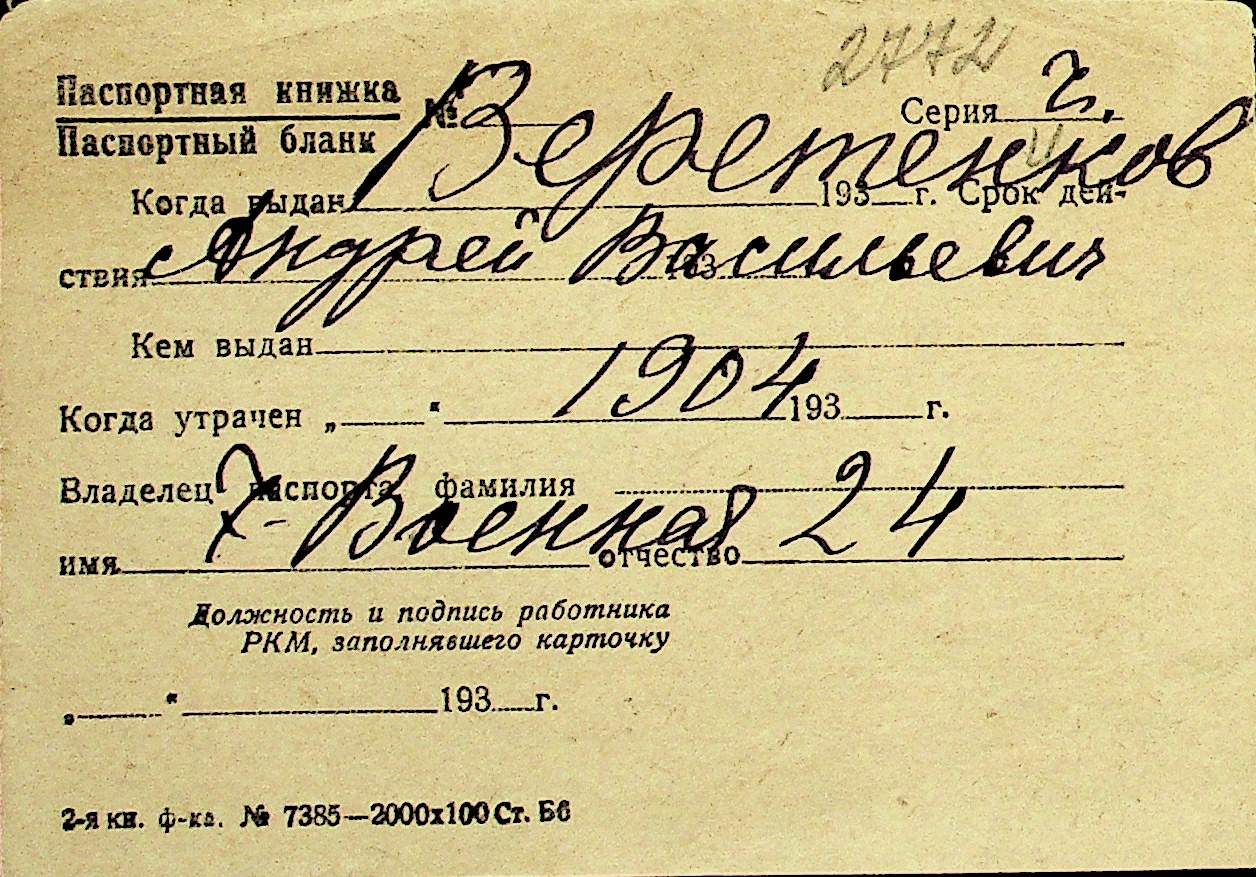 2772
Паспортная книжка
Паспортный бланк
№ Серия ч.
Веретенков
Когда выдан 193 г. Срок дей-
ствия 193
Андрей Васильевич
Кем выдан
1904
Когда утрачен „ “ 193 г.
Владелец паспорта фамилия
Военная 24
имя отчество
Должность и подпись работника
РКМ, заполнявшего карточку
„ “ 193 г.
2-я кн. ф-ка. № 7385—2000х100 Ст. Б6